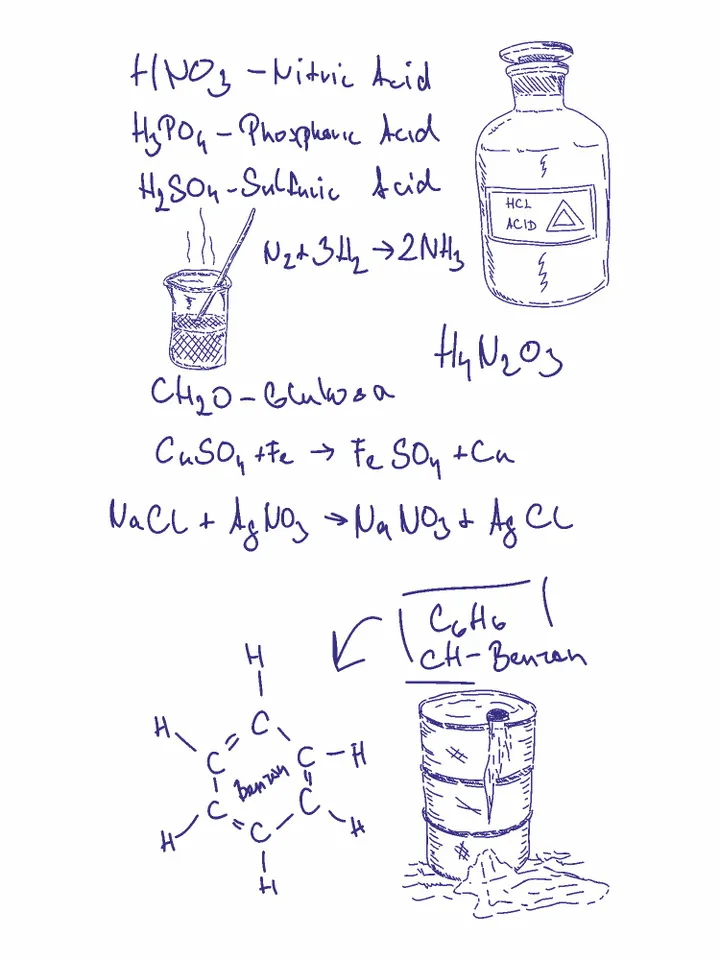 HNO3 - Nitric Acid
H3PO4 - Phosphoric Acid
H2SO4 - Sulfuric Acid
HCL
ACID
N2 + 3H2 → 2NH3
H4N2O3
CH2O - Glukosa
CuSO4 + Fe → FeSO4 + Cu
NaCl + AgNO3 → NaNO3 + AgCl
C6H6
CH - Benzon
H
H C
C C - H
Benzon
C C
H C H
H